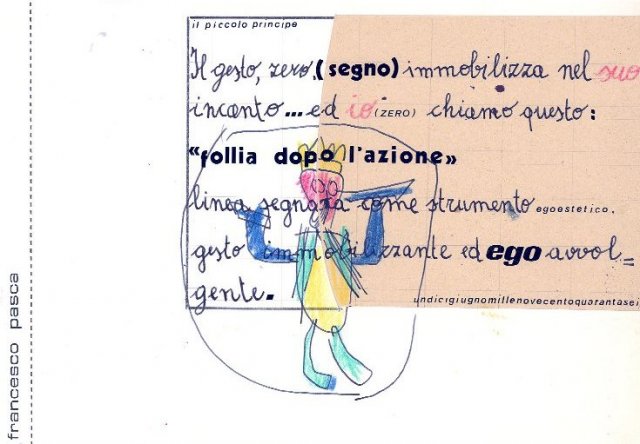 il piccolo principe
Il gesto, zero, (segno) immobilizza nel suo
incanto... ed io (ZERO) chiamo questo:
“follia dopo l'azione»
linea segnata come strumento egoestetico.
gesto immobilizzante ed ego avvol=
gente.
undicigiugnomillenovecentoquarantasei
francesco pasca